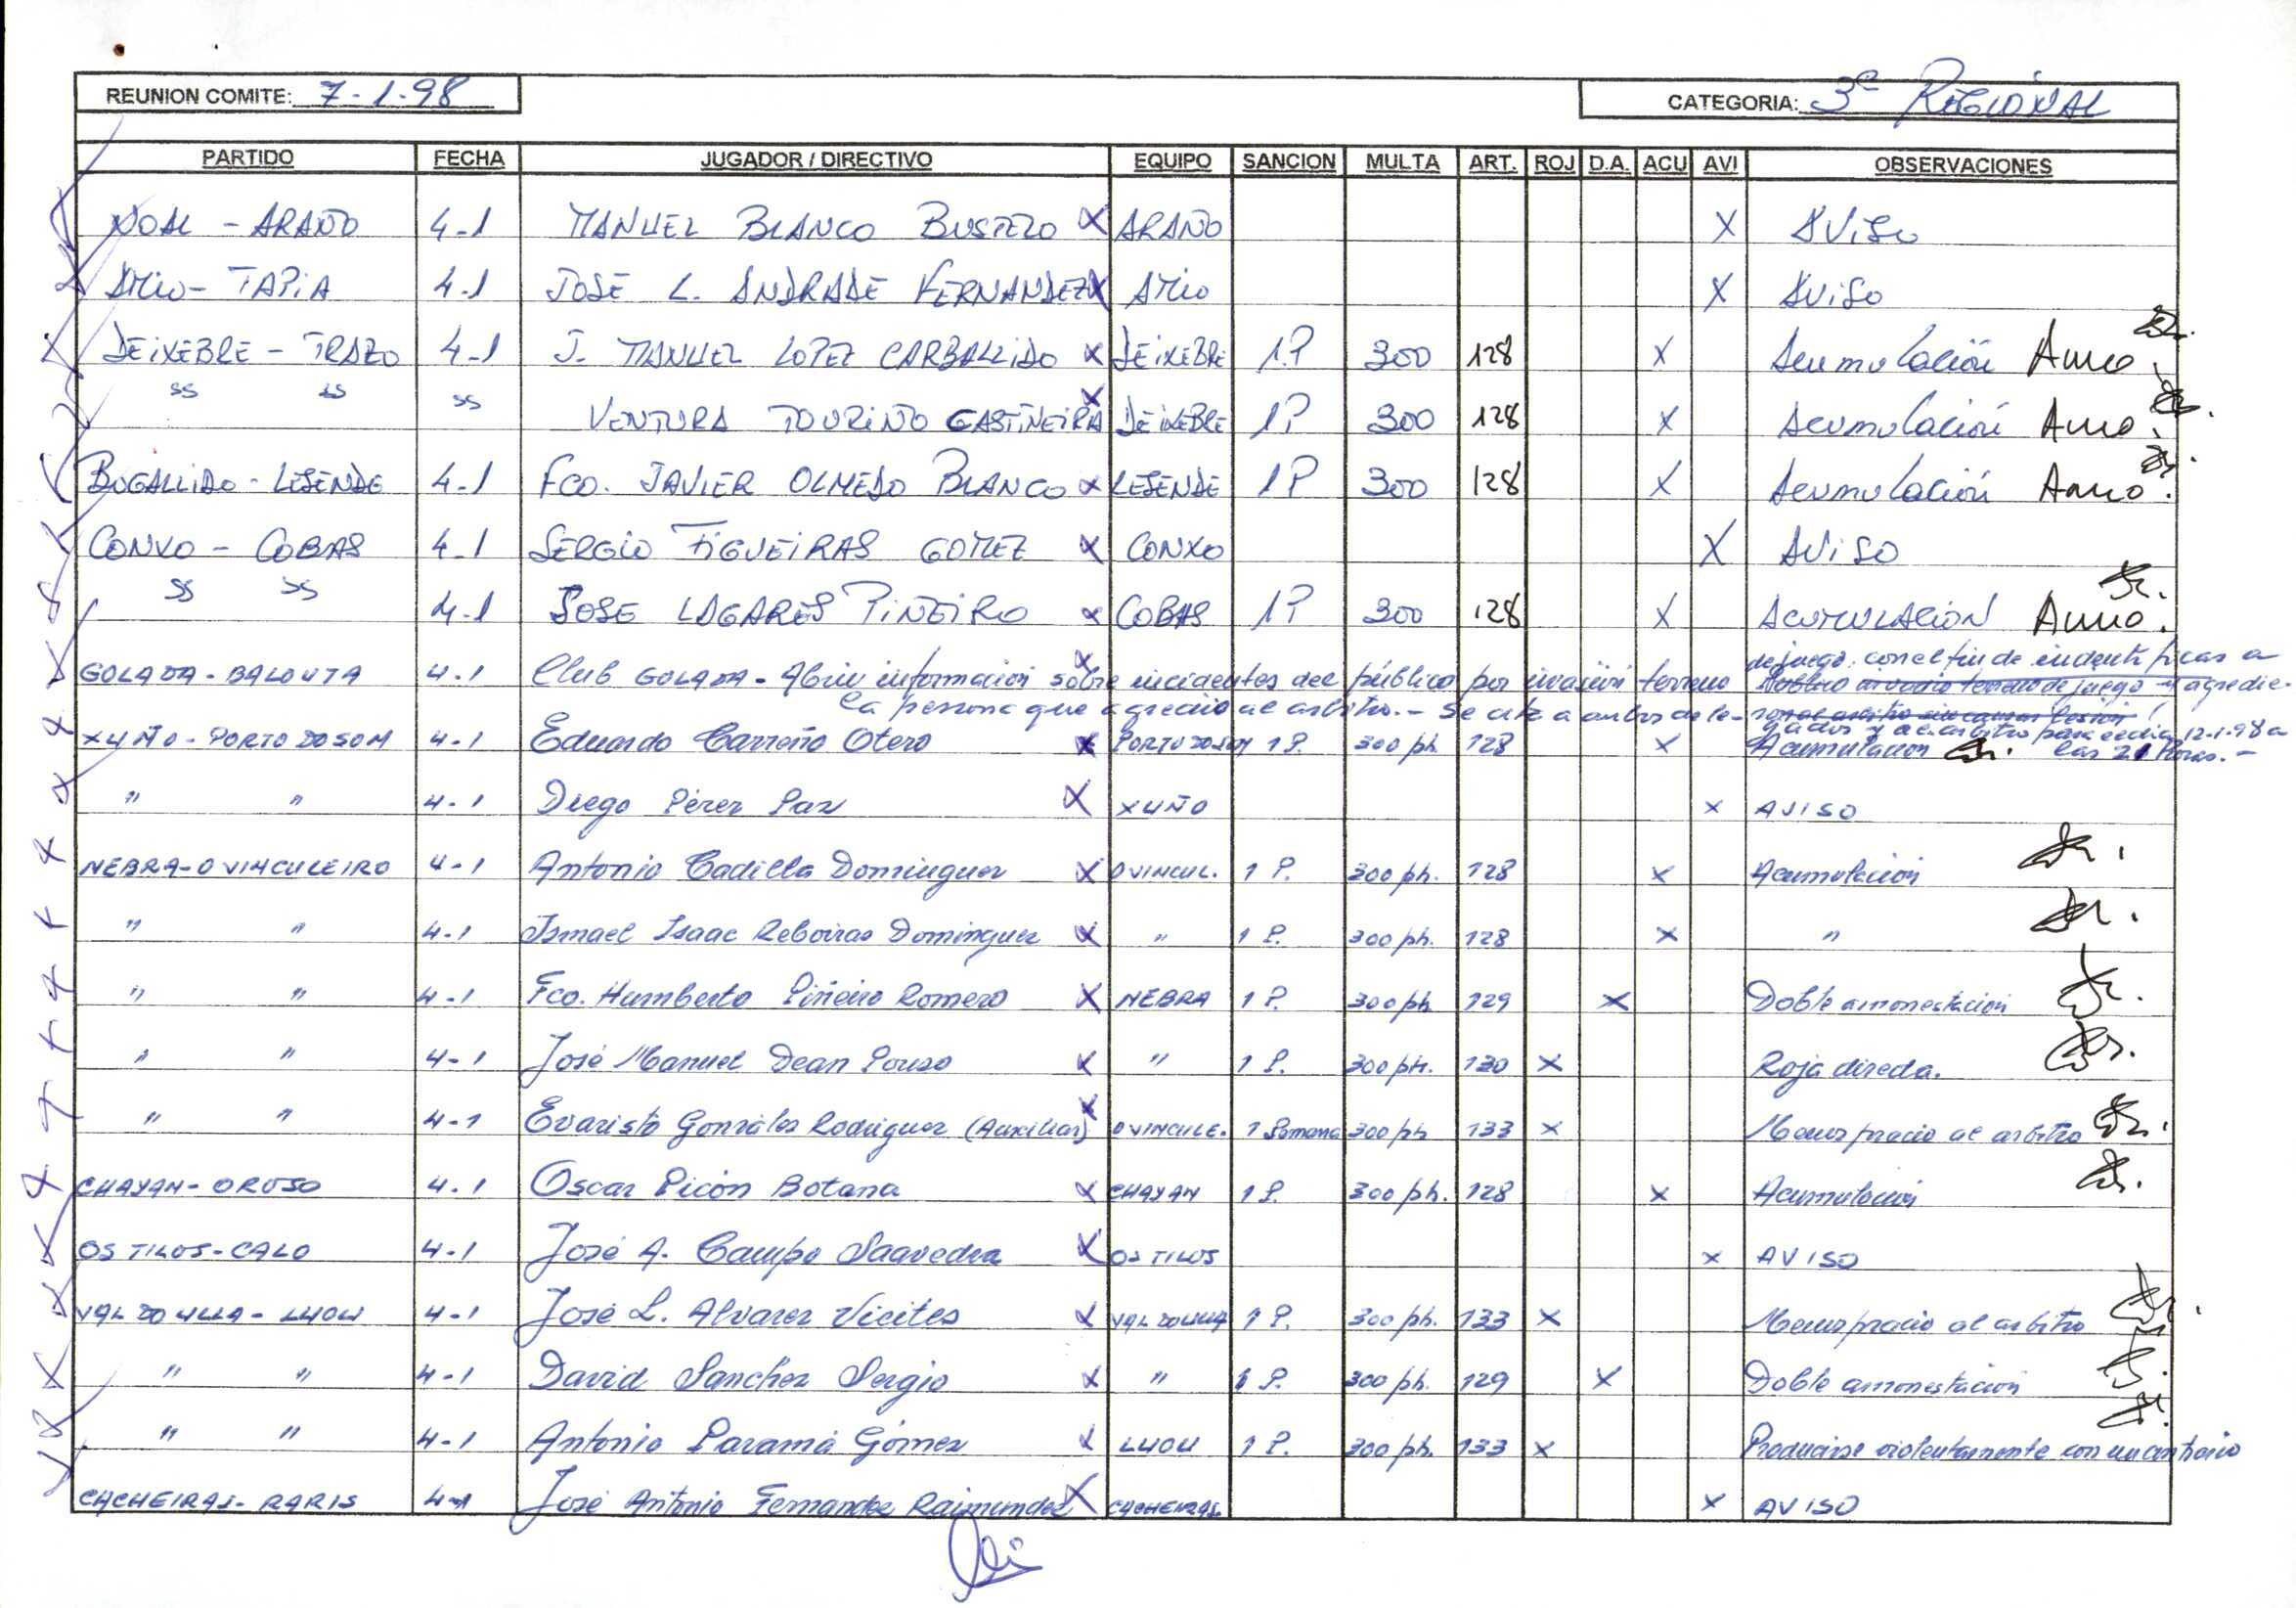 REUNION COMITE: 7-1-98
CATEGORIA: 3ª REGIONAL
PARTIDO FECHA JUGADOR / DIRECTIVO EQUIPO SANCION MULTA ART. ROJ D.A. ACU AVI OBSERVACIONES
NOAL - ARAÑO 4-1 MANUEL BLANCO BUSTELO X ARAÑO X AViSo
AMio - TAPiA 4-1 JOSE L. ANDRADE FERNANDEZ X AMio X AViSo
DEiXEBRE - TRAZO 4-1 J. MANUEL LOPEZ CARBALLIDO X DEiXEBRE 1P 300 128 X Acumulación
ss ss ss VENTURA TOURIÑO CASTIÑEIRA X DEiXEBRE 1P 300 128 X Acumulación
BUGALLIDO - LESENDE 4-1 FCO. JAVIER OLMEDO BLANCO X LESENDE 1P 300 128 X Acumulación
CONXO - COBAS 4-1 SERGIO FiGUEiRAS GOMEZ X CONXO X AViSO
ss ss 4-1 JOSE LAGARES PiÑEiRO X COBAS 1P 300 128 X ACUMULACION
GOLADA - BALOUTA 4-1 Club GOLADA - Abrir información sobre incidentes del público por invasión terreno
de juego con el fin de indentificar a
la persona que agredió al arbitro. - Se cita a ambos dele-
gados y al arbitro para el día 12-1-98 a
las 21 horas. -
XUÑO - PORTO DO SOM 4-1 Eduardo Carreño Otero X PORTO DO SOM 1 P. 300 pts 128 X Acumulacion
" " 4-1 Diego Pérez Paz X XUÑO X AVISO
NEBRA - O VINCULEIRO 4-1 Antonio Cadilla Dominguez X O VINCUL. 1 P. 300 pts. 128 X Acumulación
" " 4-1 Ismael Isaac Reboiras Dominguez X " 1 P. 300 pts. 128 X "
" " 4-1 Fco. Humberto Piñeiro Romero X NEBRA 1 P. 300 pts 129 X Doble amonestación
" " 4-1 José Manuel Dean Pouso X " 1 P. 300 pts. 130 X Roja directa.
" " 4-1 Evaristo González Rodriguez (Auxiliar) X O VINCULE. 1 Semana 300 pts 133 X Menosprecio al arbitro
CHAYAN - OROSO 4-1 Oscar Picón Botana X CHAYAN 1 P. 300 pts. 128 X Acumulación
OS TILOS - CALO 4-1 José A. Campo Saavedra X OS TILOS X AVISO
VAL DO ULLA - LUOU 4-1 José L. Alvarez Vicites X VAL DO ULLA 1 P. 300 pts. 133 X Menosprecio al arbitro
" " 4-1 David Sanchez Sergio X " 1 P. 300 pts. 129 X Doble amonestación
" " 4-1 Antonio Paramá Gómez X LUOU 1 P. 300 pts. 133 X Producirse violentamente con un contrario
CACHEIRAS - RARIS 4-1 José Antonio Fernandez Raimundez X CACHEIRAS X AVISO